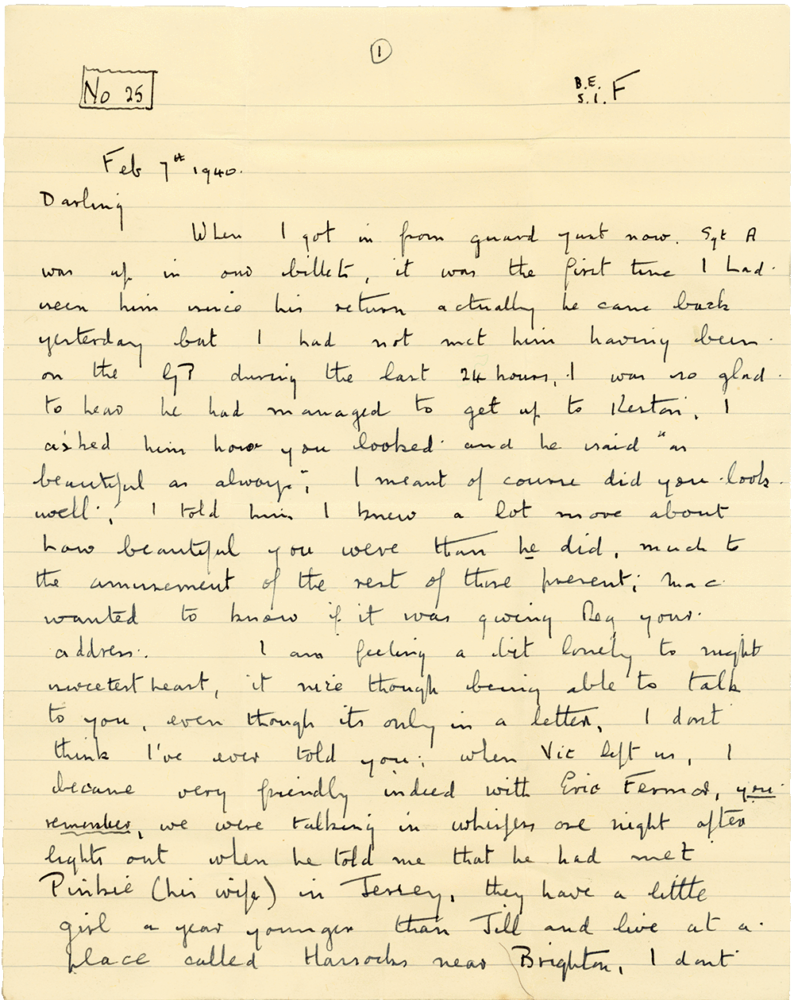 1
No 25
B.E.
S.I. F
Feb 7th 1940.
Darling
When I got in from guard just now. Sgt A
was up in our billets, it was the first time I had
seen him since his return actually he came back
yesterday but I had not met him having been
on the during the last 24 hours, I was so glad
to hear he had managed to get up to Keston, I
asked him how you looked and he said "as
beautiful as always", I meant of course did you look
well, I told him I knew a lot more about
how beautiful you were than he did, much to
the amusement of the rest of those present; Mac
wanted to know if it was giving Reg your
address. I am feeling a bit lonely to night
sweetest heart, it nice though being able to talk
to you, even though its only in a letter, I dont
think I've ever told you; when Vic left us, I
became very friendly indeed with Eric you
remember, we were talking in whispers one night after
lights out when he told me that he had met
Pinkie (his wife) in Jersey, they have a little
girl a year younger than Jill and live at a
place called Hassocks near Brighton, I dont